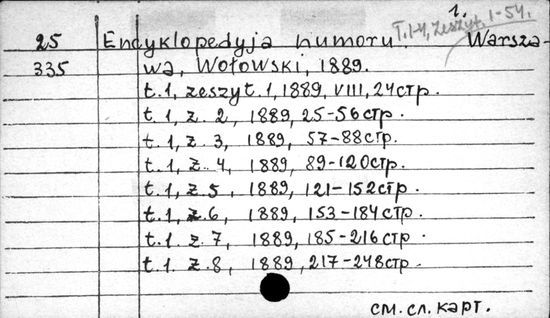 1.
T.1-4, Zeszyt. 1-54.
25 Encyklopedyja humoru. Warsza-
335 wa, Wołowski, 1889.
t.1, zeszyt.1, 1889, VIII, 24стр.
t.1, z. 2, 1889, 25-56стр.
t.1, z. 3, 1889, 57-88стр.
t.1, z. 4, 1889, 89-120стр.
t.1, z. 5, 1889, 121-152стр.
t.1, z. 6, 1889, 153-184стр.
t.1, z. 7, 1889, 185-216стр.
t.1. z. 8, 1889, 217-248стр.
см. сл. карт.